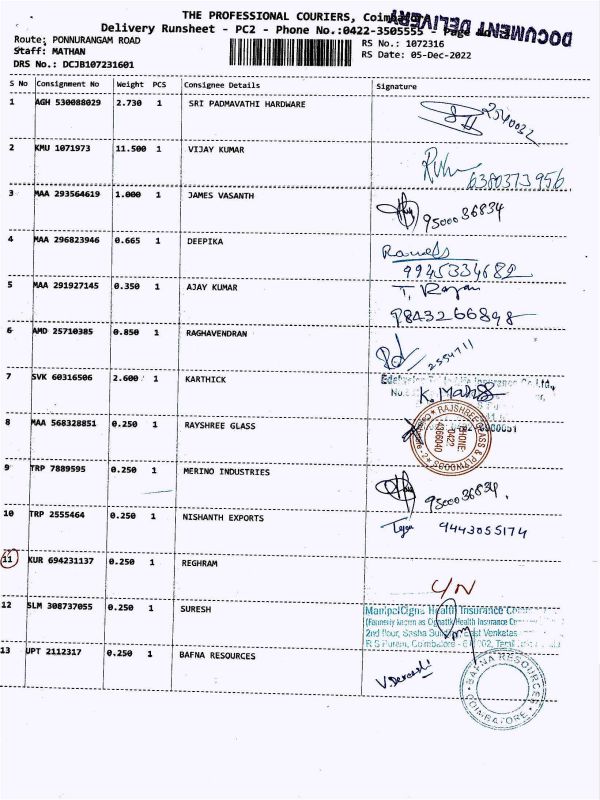 THE PROFESSIONAL COURIERS,
Delivery Runsheet - PC2 - Phone No.:0422-3505555 - Page
DOCUMENT DELIVERY
Route: PONNURANGAM ROAD
RS No.: 1072316
Staff: MATHAN
RS Date: 05-Dec-2022
DRS No.: DCJB107231601
S No Consignment No Weight PCS Consignee Details Signature
1 AGH 530088029 2.730 1 SRI PADMAVATHI HARDWARE
2 KMU 1071973 11.500 1 VIJAY KUMAR
6380373956
3 MAA 293564619 1.000 1 JAMES VASANTH
9500036834
4 MAA 296823946 0.665 1 DEEPIKA
9945334682
5 MAA 291927145 0.350 1 AJAY KUMAR
T. Rajan
9843266898
6 AMD 25710385 0.850 1 RAGHAVENDRAN
2554711
7 SVK 60316506 2.600 1 KARTHICK
Insurance Co Ltd.,
8 MAA 568328851 0.250 1 RAYSHREE GLASS
RAJSHREE GLASS & PLYWOODS
PHONE
0422
4366040
9 TRP 7889595 0.250 1 MERINO INDUSTRIES
9500036834.
10 TRP 2555464 0.250 1 NISHANTH EXPORTS
9443055174
11 KUR 694231137 0.250 1 REGHRAM
12 SLM 308737055 0.250 1 SURESH
ManipalCigna Health Insurance
(Formerly known as Health Insurance
2nd Floor, Sasha East Venkatas
R S Puram, Coimbatore
13 UPT 2112317 0.250 1 BAFNA RESOURCES
BAFNA RESOURCES
COIMBATORE